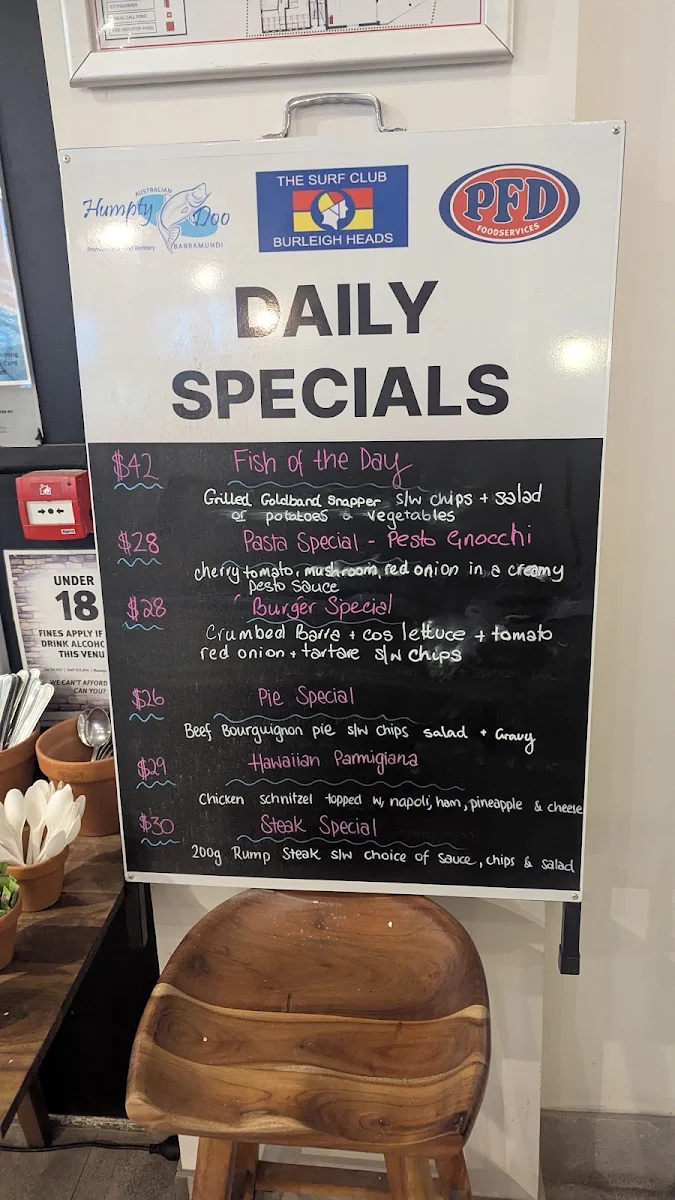 EXTINGUISHER
MANUAL CALL POINT
FIRE INDICATOR PANEL
AUSTRALIAN
Humpty Doo
BARRAMUNDI
THE SURF CLUB
BURLEIGH HEADS
PFD
FOODSERVICES
DAILY
SPECIALS
$42 Fish of the Day
Grilled Goldband Snapper s/w chips + salad
or potatoes & vegetables
$28 Pasta Special - Pesto Gnocchi
cherry tomato, mushroom, red onion in a creamy
Pesto sauce
$28 Burger Special
Crumbed Barra + cos lettuce + tomato
red onion + tartare s/w chips
$26 Pie Special
Beef Bourguignon pie s/w chips salad + Gravy
$29 Hawaiian Parmigiana
Chicken schnitzel topped w, napoli, ham, pineapple & cheese
$30 Steak Special
200g Rump Steak s/w choice of sauce, chips & salad
UNDER
18
FINES APPLY IF
DRINK ALCOHO
THIS VENU
WE CAN'T AFFORD
CAN YOU?